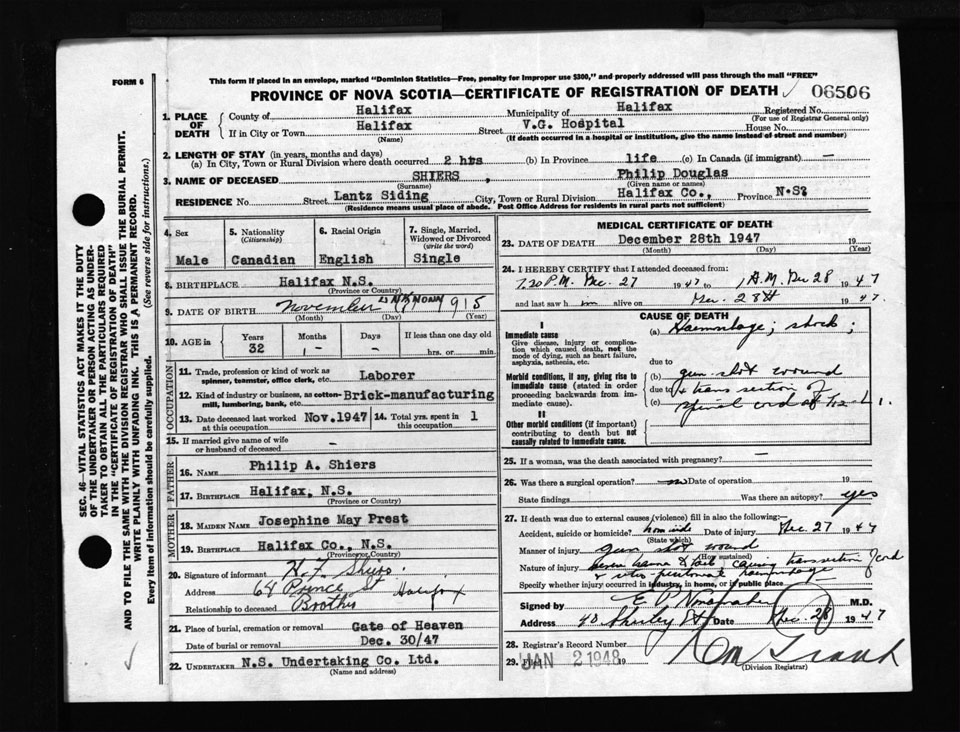 FORM 6
This form if placed in an envelope, marked "Dominion Statistics—Free, penalty for improper use $300," and properly addressed will pass through the mail "FREE"
PROVINCE OF NOVA SCOTIA—CERTIFICATE OF REGISTRATION OF DEATH 06506
1. PLACE OF DEATH
County of Halifax Municipality of Halifax Registered No.
(For use of Registrar General only)
If in City or Town Halifax Street V.G. Hospital House No.
(Name) (If death occurred in a hospital or institution, give the name instead of street and number)
2. LENGTH OF STAY (in years, months and days)
(a) In City, Town or Rural Division where death occurred 2 hrs (b) In Province life (c) In Canada (if immigrant) —
3. NAME OF DECEASED SHIERS , Philip Douglas
(Surname) (Given name or names)
RESIDENCE No. Street Lantz Siding City, Town or Rural Division Halifax Co., Province N.S.
(Residence means usual place of abode. Post Office Address for residents in rural parts not sufficient)
4. Sex Male
5. Nationality (Citizenship) Canadian
6. Racial Origin English
7. Single, Married, Widowed or Divorced (write the word) Single
8. BIRTHPLACE Halifax N.S.
(Province or Country)
9. DATE OF BIRTH November UNKNOWN 1915
(Month) (Day) (Year)
10. AGE in Years 32 Months - Days - If less than one day hrs. or min.
OCCUPATION
11. Trade, profession or kind of work as spinner, teamster, office clerk, etc. Laborer
12. Kind of industry or business, as cotton-mill, lumbering, bank, etc. Brick-manufacturing
13. Date deceased last worked at this occupation Nov.1947
14. Total yrs. spent in this occupation 1
15. If married give name of wife or husband of deceased -
FATHER
16. NAME Philip A. Shiers
17. BIRTHPLACE Halifax, N.S.
(Province or Country)
MOTHER
18. MAIDEN NAME Josephine May Prest
19. BIRTHPLACE Halifax Co., N.S.
(Province or Country)
20. Signature of informant H.F. Shiers.
Address 68 Prince St Halifax
Relationship to deceased Brother
21. Place of burial, cremation or removal Gate of Heaven
Date of burial or removal Dec. 30/47
22. UNDERTAKER N.S. Undertaking Co. Ltd.
(Name and Address)
MEDICAL CERTIFICATE OF DEATH
23. DATE OF DEATH December 28th 1947 19
(Month) (Day) (Year)
24. I HEREBY CERTIFY that I attended deceased from:
7.20 P.M. Dec. 27 1947 to 1 A.M. Dec 28 1947
and last saw him alive on Dec. 28th 1947.
CAUSE OF DEATH
I
Immediate cause
Give disease, injury or complication which caused death, not the mode of dying, such as heart failure, asphyxia, asthenia, etc.
(a) Haemorrhage; shock;
due to
Morbid conditions, if any, giving rise to immediate cause (stated in order proceeding backwards from immediate cause).
(b) gun shot wound
due to & transection of
(c) spinal cord at T12-L1.
II
Other morbid conditions (if important) contributing to death but not causally related to immediate cause.
25. If a woman, was the death associated with pregnancy? —
26. Was there a surgical operation? no Date of operation 19
State findings Was there an autopsy? yes
27. If death was due to external causes (violence) fill in also the following:—
Accident, suicide or homicide? homicide Date of injury Dec. 27 1947
(State which)
Manner of injury gun shot wound
(How sustained)
Nature of injury causing transection of cord
& haemorrhage
Specify whether injury occurred in industry, in home, or in public place
Signed by M.D.
Address 40 Shirley St Date Dec. 28 1947
28. Registrar's Record Number
29. Filed JAN 2 1948 19
(Division Registrar)
SEC. 46—VITAL STATISTICS ACT MAKES IT THE DUTY
OF THE UNDERTAKER OR PERSON ACTING AS UNDER-
TAKER TO OBTAIN ALL THE PARTICULARS REQUIRED
IN THE "CERTIFICATE OF REGISTRATION OF DEATH"
AND TO FILE THE SAME WITH THE DIVISION REGISTRAR WHO SHALL ISSUE THE BURIAL PERMIT.
WRITE PLAINLY WITH UNFADING INK. THIS IS A PERMANENT RECORD.
Every item of information should be carefully supplied. (See reverse side for instructions.)